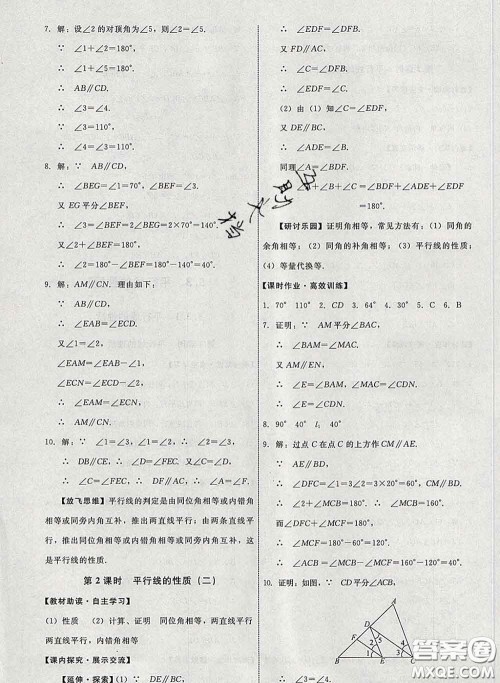 7. 解：设∠2的对顶角为∠5，则∠2＝∠5.
∵ ∠1＋∠2＝180°，
∴ ∠1＋∠5＝180°.
∴ AB∥CD.
∴ ∠3＝∠4.
∴ ∠3＝110°.
∴ ∠4＝110°.
8. 解：∵ AB∥CD，
∴ ∠BEG＝∠1＝70°，∠3＝∠BEF.
又 EG平分∠BEF，
∴ ∠3＝∠BEF＝2∠BEG＝2×70°＝140°.
又∵ ∠2＋∠BEF＝180°，
∴ ∠2＝180°－∠BEF＝180°－140°＝40°.
9. 解：AM∥CN. 理由如下：
∵ AB∥CD，
∴ ∠EAB＝∠ECD.
又∵ ∠1＝∠2，
∠EAM＝∠EAB－∠1，
∠ECN＝∠ECD－∠2，
∴ ∠EAM＝∠ECN.
∴ AM∥CN.
10. 解：∵ ∠1＝∠2，∠1＝∠3，
∴ ∠2＝∠3.
∴ DB∥CE. ∴ ∠C＝∠DBA.
又∵ ∠C＝∠D，∴ ∠D＝∠DBA.
∴ DF∥AC. ∴ ∠A＝∠F.
【放飞思维】平行线的判定是由同位角相等或内错角
相等或同旁内角互补，推出两直线平行；由两条直线
平行，推出同位角相等或内错角相等或同旁内角互
补，这是平行线的性质.
第2课时 平行线的性质（二）
【教材助读·自主学习】
（1）性质 （2）计算、证明 同位角相等，两直线平行
两直线平行，内错角相等
【课内探究·展示交流】
【延伸·探索】（1）证明：
∴ ∠EDF＝∠CFD.
又 FD∥AC，
∴ ∠C＝∠DFB.
∴ ∠C＝∠EDF.
（2）由（1）知∠C＝∠EDF，
又∵ DE∥AB，
∴ ∠ADE＝∠B.
同理∠A＝∠BDF.
＋∠B＋∠C＝∠BDF＋∠ADE＋∠EDF
＝180°.
【研讨乐园】证明角相等，常见方法有：（1）同角的
余角相等；（2）同角的补角相等；（3）平行线的性质；
（4）等量代换等.
【课时作业·高效训练】
1. 70° 110° 2. CD 3. 64° 4. 30° 5. C 6. B
7. 证明：∵ AM平分∠BAC，
∴ ∠BAM＝∠CAM.
又∵ AM∥EN，
∴ ∠E＝∠BAM，∠ENC＝∠CAM.
∴ ∠E＝∠ENC.
8. 90° 40° 50°
9. 解：过点C在点C的上方作CM∥AE.
∵ AE∥DF，
∴ CM∥DF.
∴ ∠DCM＝∠1＝
∴ ＝180°.
∴ ∠2＋∠MCB＝180°.
而∠MCB＝60°，
∴ ∠MCF＝180°－∠MCB＝120°.
∴ ∠2＝∠MCF＝120°.
10. 证明：如图 ∵ CD平分∠ACB，
A
D
B
E
F
C
2
5
3
1
4
助
大
答案圈
MXQE.COM